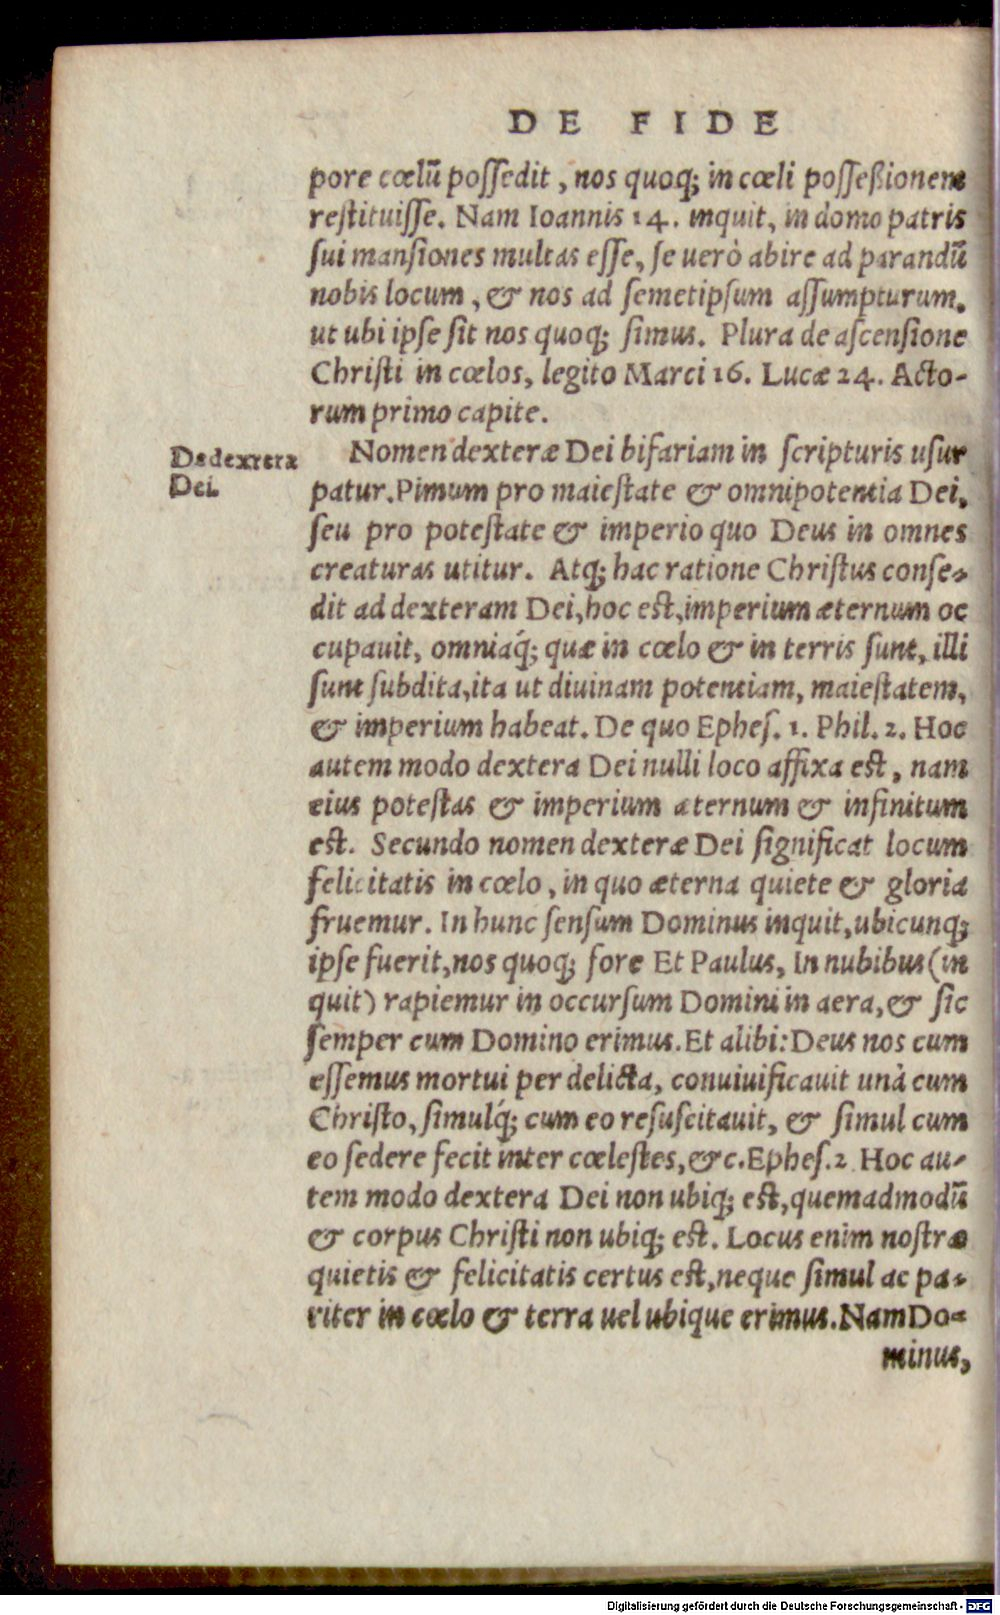 DE FIDE
pore cœlũ possedit, nos quoq; in cœli possessionem
restituisse. Nam Ioannis 14. inquit, in domo patris
sui mansiones multas esse, se uerò abire ad parandũ
nobis locum, & nos ad semetipsum assumpturum.
ut ubi ipse sit nos quoq; simus. Plura de ascensione
Christi in cœlos, legito Marci 16. Lucæ 24. Acto-
rum primo capite.
De dexrera
Dei.
Nomen dexteræ Dei bifariam in scripturis usur
patur. Pimum pro maiestate & omnipotentia Dei,
seu pro potestate & imperio quo Deus in omnes
creaturas utitur. Atq; hac ratione Christus conse-
dit ad dexteram Dei, hoc est, imperium æternum oc
cupauit, omniaq́; quæ in cœlo & in terris sunt, illi
sunt subdita, ita ut diuinam potentiam, maiestatem,
& imperium habeat. De quo Ephes. 1. Phil. 2. Hoc
autem modo dextera Dei nulli loco affixa est, nam
eius potestas & imperium æternum & infinitum
est. Secundo nomen dexteræ Dei significat locum
felicitatis in cœlo, in quo æterna quiete & gloria
fruemur. In hunc sensum Dominus inquit, ubicunq;
ipse fuerit, nos quoq; fore Et Paulus, In nubibus (in
quit) rapiemur in occursum Domini in aera, & sic
semper cum Domino erimus. Et alibi: Deus nos cum
essemus mortui per delicta, conuiuificauit unà cum
Christo, simulq́; cum eo resuscitauit, & simul cum
eo sedere fecit inter cœlestes, &c. Ephes. 2 Hoc au-
tem modo dextera Dei non ubiq; est, quemadmodũ
& corpus Christi non ubiq; est. Locus enim nostræ
quietis & felicitatis certus est, neque simul ac pa-
riter in cœlo & terra uel ubique erimus. Nam Do-
minus,
Digitalisierung gefördert durch die Deutsche Forschungsgemeinschaft - DFG